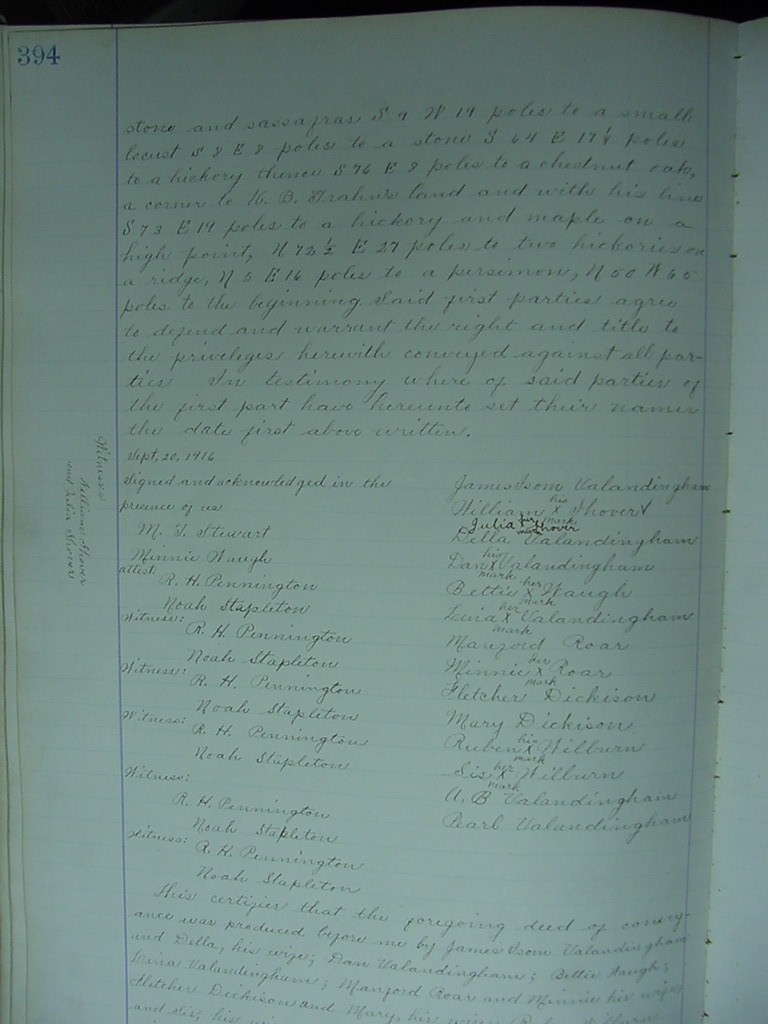 394
stone and sassafras S 9 W 19 poles to a small
locust S 8 E 8 poles to a stone S 64 E 17 1/4 poles
to a hickory thence S 76 E 8 poles to a chestnut oak,
a corner to K. B. Grahn's land and with his line
S 73 E 19 poles to a hickory and maple on a
high point, N 72 1/2 E 27 poles to two hickories on
a ridge, N 5 E 16 poles to a persimon, N 50 W 65
poles to the beginning. Said first parties agree
to defend and warrant the right and title to
the priveleges herewith conveyed against all par-
ties. In testimony where of said parties of
the first part have hereunto set their names
the date first above written.
Sept. 20, 1916
Signed and acknowledged in the
presence of us
M. T. Stewart
Minnie Waugh
attest:
R. H. Pennington
Noah Stapleton
Witness:
R. H. Pennington
Noah Stapleton
Witness:
R. H. Pennington
Noah Stapleton
Witness:
R. H. Pennington
Noah Stapleton
Witness:
R. H. Pennington
Noah Stapleton
Witness:
R. H. Pennington
Noah Stapleton
James Isom Valandingham
William his X mark Shover
Julia her X mark Shover
Della Valandingham
Dan his X mark Valandingham
Bettie her X mark Waugh
Lina her X mark Valandingham
Manford Roar
Minnie her X mark Roar
Fletcher Dickison
Mary Dickison
Ruben his X mark Wilburn
Sis her X mark Wilburn
A. B Valandingham
Pearl Valandingham
Witness
William Shover
and Julia Shover
This certifies that the foregoing deed of convey-
ance was produced before me by James Isom Valandingham
and Della, his wife; Dan Valandingham; Bettie Waugh;
Lina Valandingham; Manford Roar and Minnie his wife;
Fletcher Dickison and Mary, his wife; Wilburn
and Sis, his